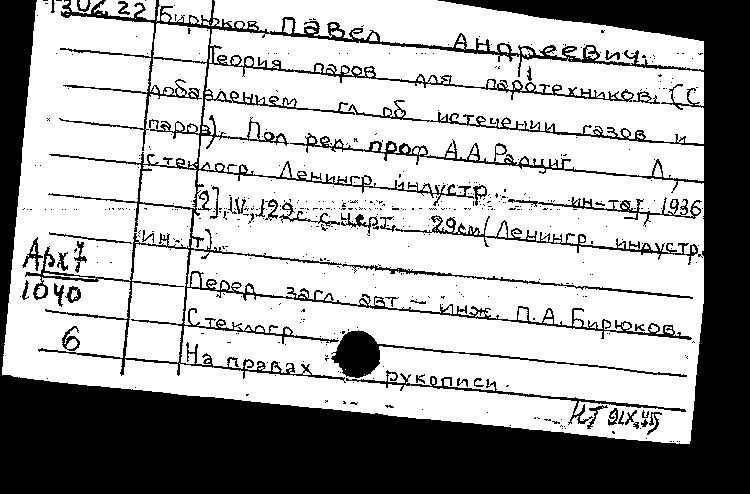 Бирюков, Павел Андреевич.
Теория паров для паротехников. (С
добавлением гл. об истечении газов и
паров). Под ред. проф А.А. Радциг. Л.,
Стеклогр. Ленингр. индустр. ин-та, 1936
[2], IV, 129 с. с черт. 29см (Ленингр. индустр.
ин-т).
Арх7
1040
Перед загл. авт. – инж. П.А. Бирюков.
Стеклогр.
6
На правах рукописи.